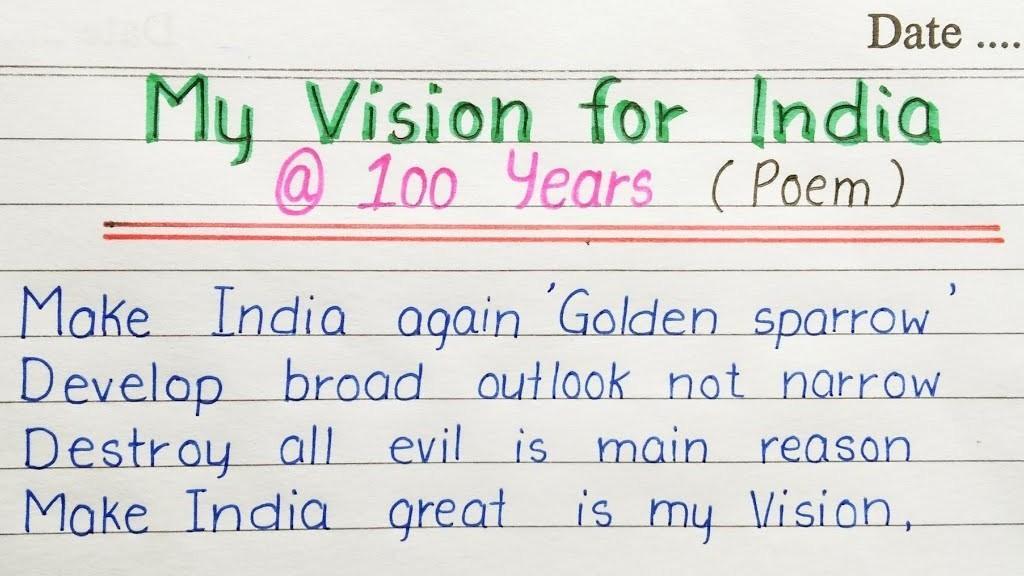 Date ....
My Vision for India
@ 100 Years (Poem)
Make India again 'Golden sparrow'
Develop broad outlook not narrow
Destroy all evil is main reason
Make India great is my Vision,